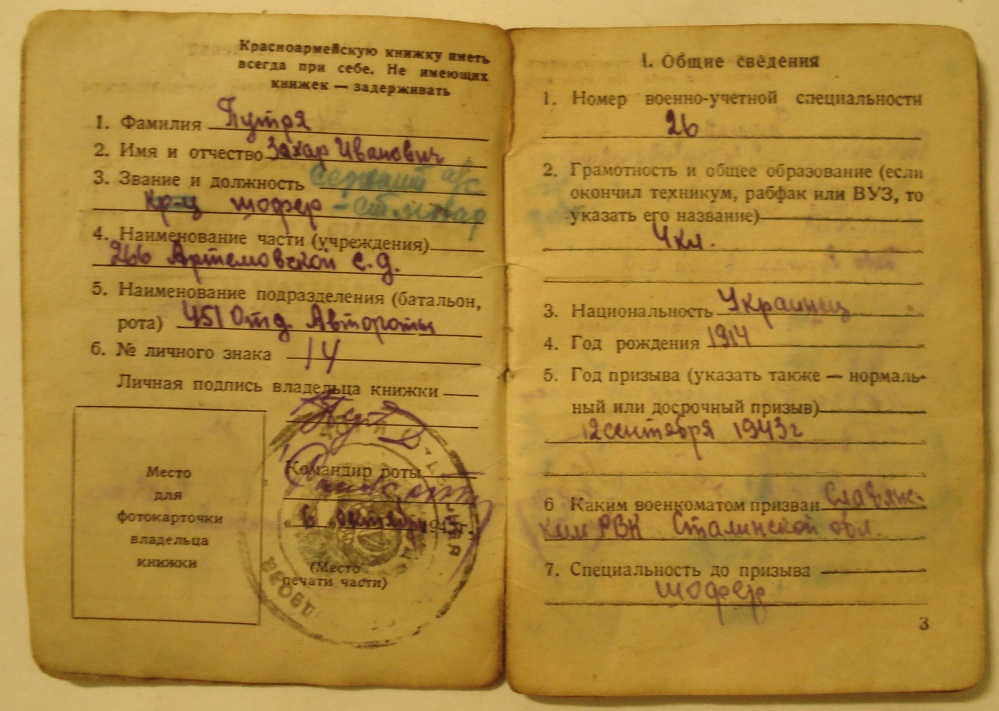 Красноармейскую книжку иметь
всегда при себе. Не имеющих
книжек — задерживать
1. Фамилия Путря
2. Имя и отчество Захар Иванович
3. Звание и должность Сержант а/с
кр-ц шофер
4. Наименование части (учреждения)
266 Артемовской с.д.
5. Наименование подразделения (батальон,
рота) 451 Отд. Автороты
6. № личного знака 14
Личная подпись владельца книжки
Командир роты
Место
для
фотокарточки
владельца
книжки
« 6 » октября 1943 г.
(Место
печати части)
I. Общие сведения
1. Номер военно-учетной специальности
26
2. Грамотность и общее образование (если
окончил техникум, рабфак или ВУЗ, то
указать его название)
4 кл.
3. Национальность Украинец
4. Год рождения 1914
5. Год призыва (указать также — нормаль-
ный или досрочный призыв)
12 сентября 1943 г
6 Каким военкоматом призван Славянс-
ким РВК Сталинской обл.
7. Специальность до призыва
шофер
3